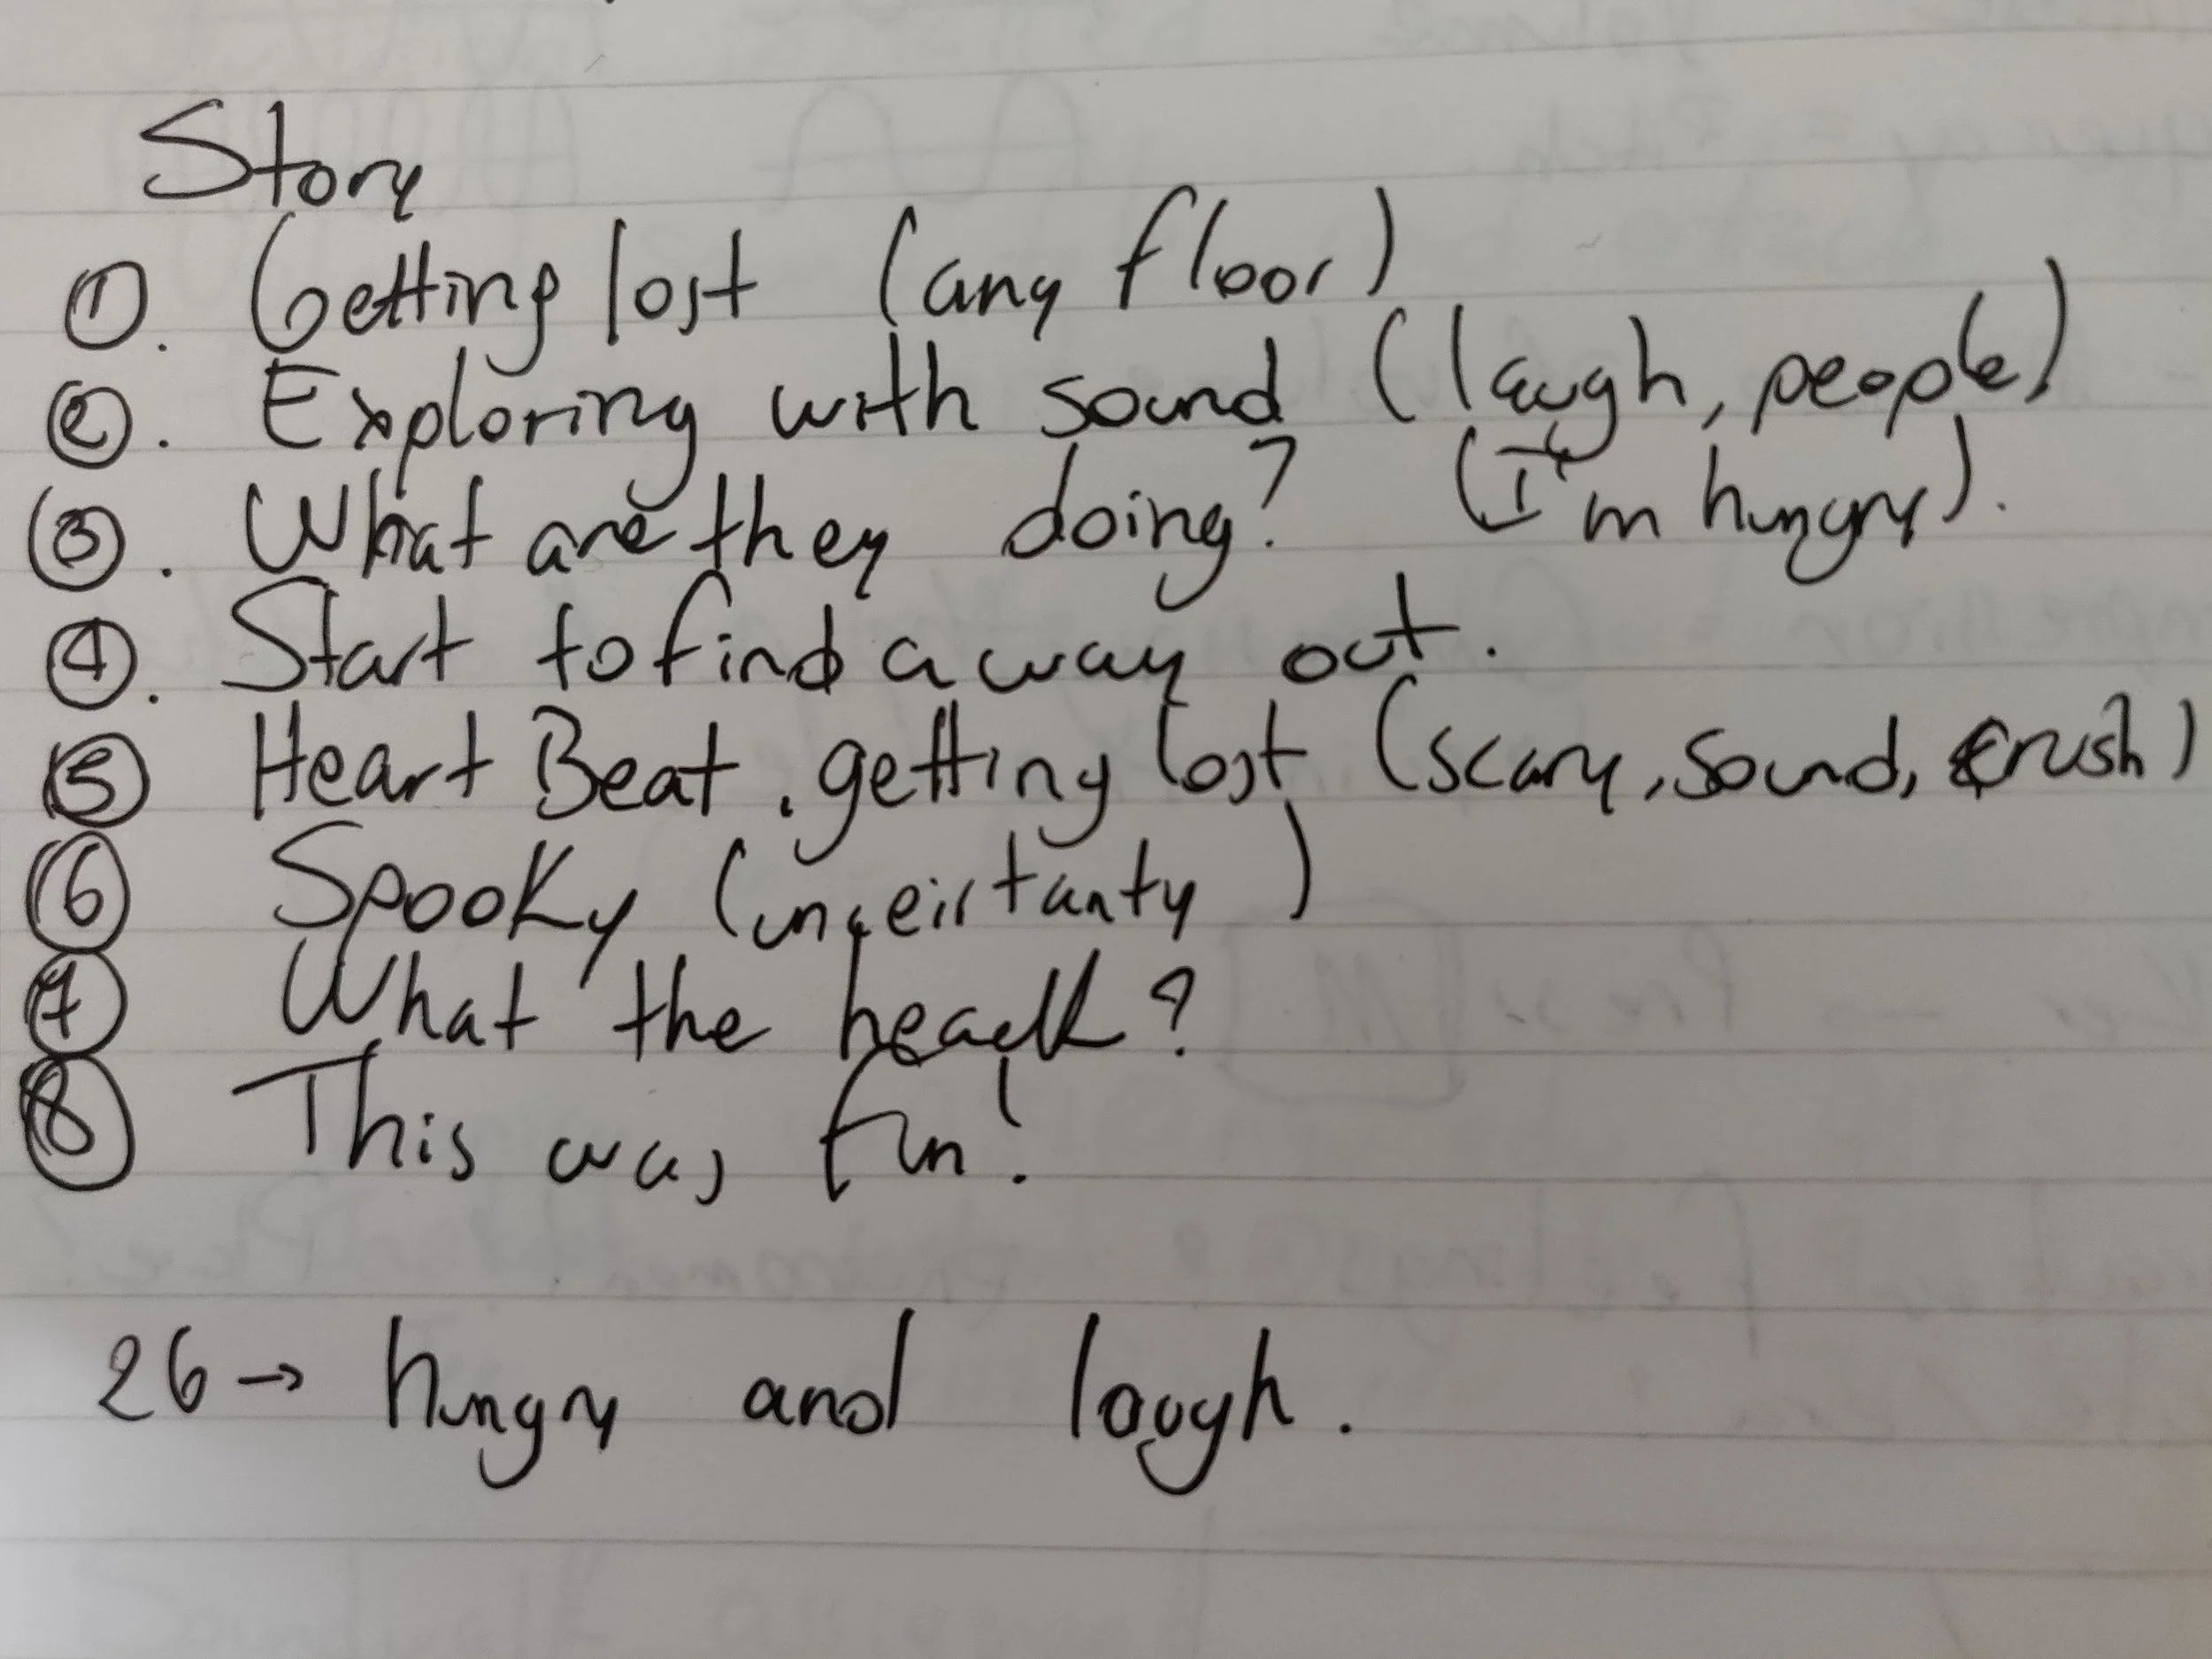 Story
①. Getting lost (any floor)
②. Exploring with sound (laugh, people)
③. What are they doing? (I'm hungry).
④. Start to find a way out.
⑤ Heart Beat. getting lost (scary, sound, crush)
⑥ Spooky (unceirtanty)
⑦ What the heack?
⑧ This was fun!
26 → hungry and laugh.